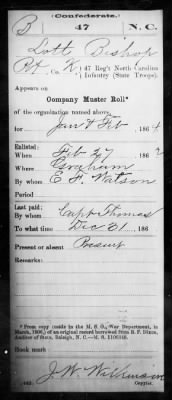 (Confederate.)
B 47 N.C.
Lott Bishop
Pt, Co. K, 47 Reg't North Carolina
Infantry (State Troops).
Appears on
Company Muster Roll*
of the organization named above,
for Jan & Feb, 1864
Enlisted:
When Feb 27, 186 2
Where
By whom E. F. Watson
Period
Last paid:
By whom Capt Thomas
To what time Dec 31, 186
Present or absent Present
Remarks:
*From copy (made in the M. S. O., War Department, in
March, 1906,) of an original record borrowed from B. F. Dixon,
Auditor of State, Raleigh, N. C.—M. S. 1106348.
Book mark:
J. W. Wilkinson
Copyist.